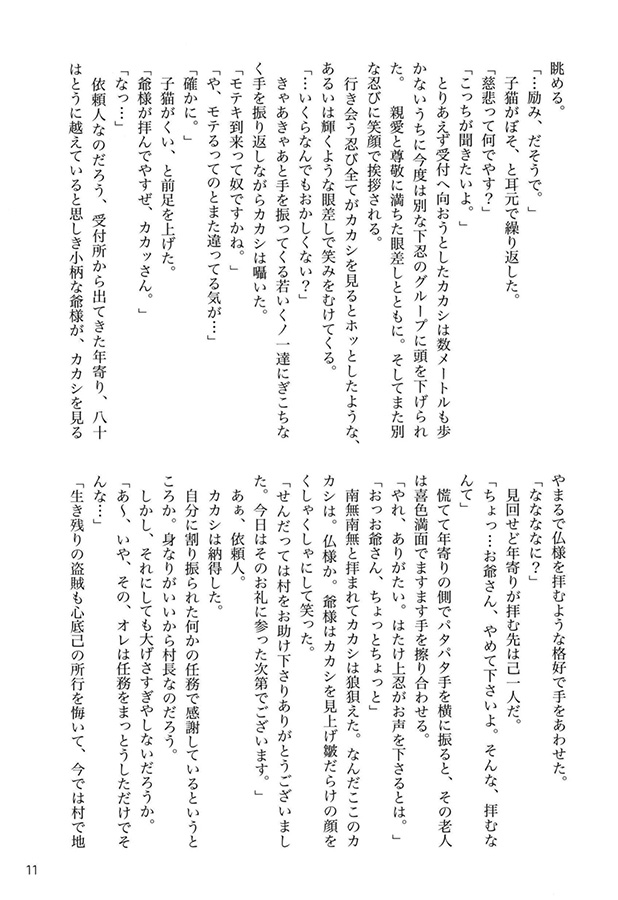 眺める。
「…励み、だそうで。」
子猫がぼそ、と耳元で繰り返した。
「慈悲って何でやす？」
「こっちが聞きたいよ。」
とりあえず受付へ向おうとしたカカシは数メートルも歩
かないうちに今度は別な下忍のグループに頭を下げられ
た。　親愛と尊敬に満ちた眼差しとともに。そしてまた別
な忍びに笑顔で挨拶される。
行き会う忍び全てがカカシを見るとホッとしたような、
あるいは輝くような眼差しで笑みをむけてくる。
「…いくらなんでもおかしくない？」
きゃあきゃあと手を振ってくる若いくノ一達にぎこちな
く手を振り返しながらカカシは囁いた。
「モテキ到来って奴ですかね。」
「や、モテるってのとまた違ってる気が…」
「確かに。」
子猫がくい、と前足を上げた。
「爺様が拝んでやすぜ、カカッさん。」
「なっ…」
依頼人なのだろう、受付所から出てきた年寄り、八十
はとうに越えていると思しき小柄な爺様が、カカシを見る
やまるで仏様を拝むような格好で手をあわせた。
「なななな​に？」
見回せど年寄りが拝む先は己一人だ。
「ちょっ…お爺さん、やめて下さいよ。そんな、拝むな
んて」
慌てて年寄りの側でパタパタ手を横に振ると、その老人
は喜色満面でますます手を擦り合わせる。
「やれ、ありがたい。はたけ上忍がお声を下さるとは。」
「おっお爺さん、ちょっとちょっと」
南無南無と拝まれてカカシは狼狽えた。なんだここのカ
カシは。仏様か。爺様はカカシを見上げ皺だらけの顔を
くしゃくしゃにして笑った。
「せんだっては村をお助け下さりありがとうございまし
た。今日はそのお礼に参った次第でございます。」
あぁ、依頼人。
カカシは納得した。
自分に割り振られた何かの任務で感謝しているというと
ころか。身なりがいいから村長なのだろう。
しかし、それにしても大げさすぎやしないだろうか。
「あ〜、いや、その、オレは任務をまっとうしただけでそ
んな…」
「生き残りの盗賊も心底己の所行を悔いて、今では村で地
11